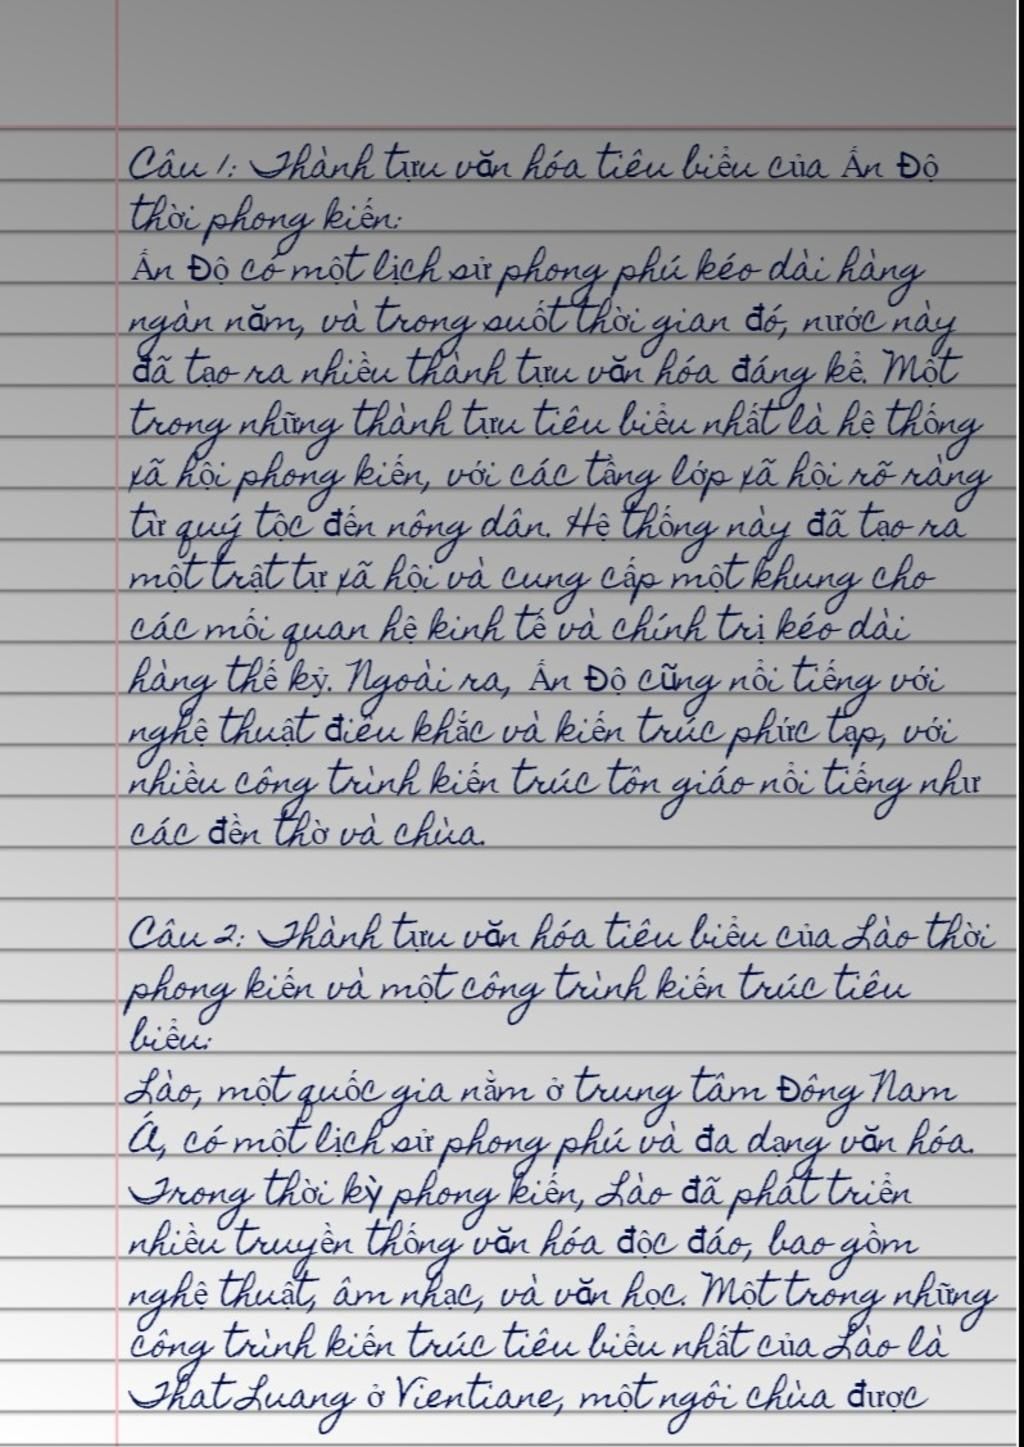 Câu 1: Thành tựu văn hóa tiêu biểu của Ấn Độ
thời phong kiến:
Ấn Độ có một lịch sử phong phú kéo dài hàng
ngàn năm, và trong suốt thời gian đó, nước này
đã tạo ra nhiều thành tựu văn hóa đáng kể. Một
trong những thành tựu tiêu biểu nhất là hệ thống
xã hội phong kiến, với các tầng lớp xã hội rõ ràng
từ quý tộc đến nông dân. Hệ thống này đã tạo ra
một trật tự xã hội và cung cấp một khung cho
các mối quan hệ kinh tế và chính trị kéo dài
hàng thế kỷ. Ngoài ra, Ấn Độ cũng nổi tiếng với
nghệ thuật điêu khắc và kiến trúc phức tạp, với
nhiều công trình kiến trúc tôn giáo nổi tiếng như
các đền thờ và chùa.
Câu 2: Thành tựu văn hóa tiêu biểu của Lào thời
phong kiến và một công trình kiến trúc tiêu
biểu:
Lào, một quốc gia nằm ở trung tâm Đông Nam
Á, có một lịch sử phong phú và đa dạng văn hóa.
Trong thời kỳ phong kiến, Lào đã phát triển
nhiều truyền thống văn hóa độc đáo, bao gồm
nghệ thuật, âm nhạc, và văn học. Một trong những
công trình kiến trúc tiêu biểu nhất của Lào là
That Luang ở Vientiane, một ngôi chùa được